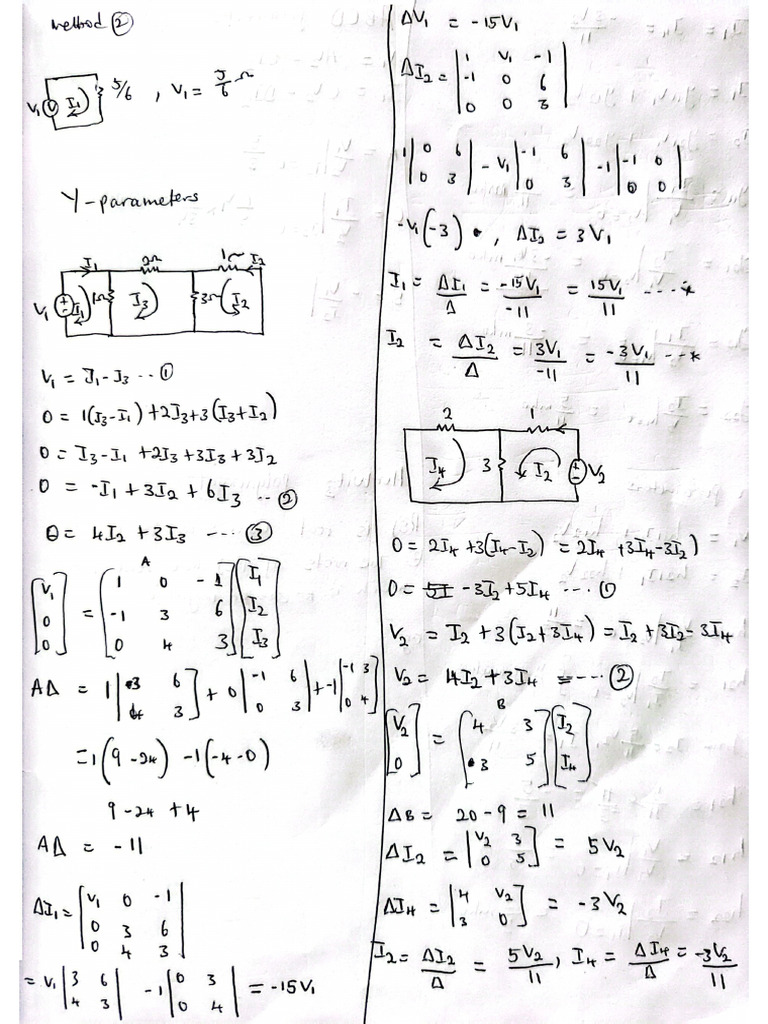 method ②
V₁ I₁ 5/6 , V₁ = 5/6 Ω
Y-parameters
I₁ 2Ω 1Ω I₂
V₁ + - I₁ 1Ω I₃ 3Ω I₂
V₁ = I₁ - I₃ --- ①
0 = 1(I₃-I₁) + 2I₃ + 3(I₃+I₂)
0 = I₃ - I₁ + 2I₃ + 3I₃ + 3I₂
0 = -I₁ + 3I₂ + 6I₃ --- ②
0 = 4I₂ + 3I₃ ---- ③
A
[V₁ = (1 0 -1 [I₁
0 -1 3 6 I₂
0] 0 4 3) I₃]
AΔ = 1|3 6 + 0|-1 6 + -1|-1 3
4 3] 0 3| 0 4]
= 1(9-24) -1(-4-0)
9-24 +4
AΔ = -11
ΔI₁ = |V₁ 0 -1|
0 3 6
0 4 3
= V₁|3 6 -1|0 3 = -15V₁
4 3| 0 4|
ΔV₁ = -15V₁
ΔI₂ = |1 V₁ -1|
-1 0 6
0 0 3
1|0 6 - V₁|-1 6 -1|-1 0|
0 3| 0 3| 0 0|
-V₁(-3) , ΔI₂ = 3V₁
I₁ = ΔI₁/Δ = -15V₁/-11 = 15V₁/11 ---- *
I₂ = ΔI₂/Δ = 3V₁/-11 = -3V₁/11 --- *
2 1
I₄ 3 I₂ + - V₂
0 = 2I₄ + 3(I₄-I₂) = 2I₄ + 3I₄ - 3I₂)
0 = -3I₂ + 5I₄ ---- ①
V₂ = I₂ + 3(I₂+3I₄) = I₂ + 3I₂ - 3I₄
V₂ = 4I₂ + 3I₄ ---- ②
B
[V₂ = (4 3 [I₂
0] 3 5] I₄]
ΔB = 20 - 9 = 11
ΔI₂ = |V₂ 3 = 5V₂
0 5]
ΔI₄ = |4 V₂ = -3V₂
3 0]
I₂ = ΔI₂/Δ = 5V₂/11 , I₄ = ΔI₄/Δ = -3V₂/11